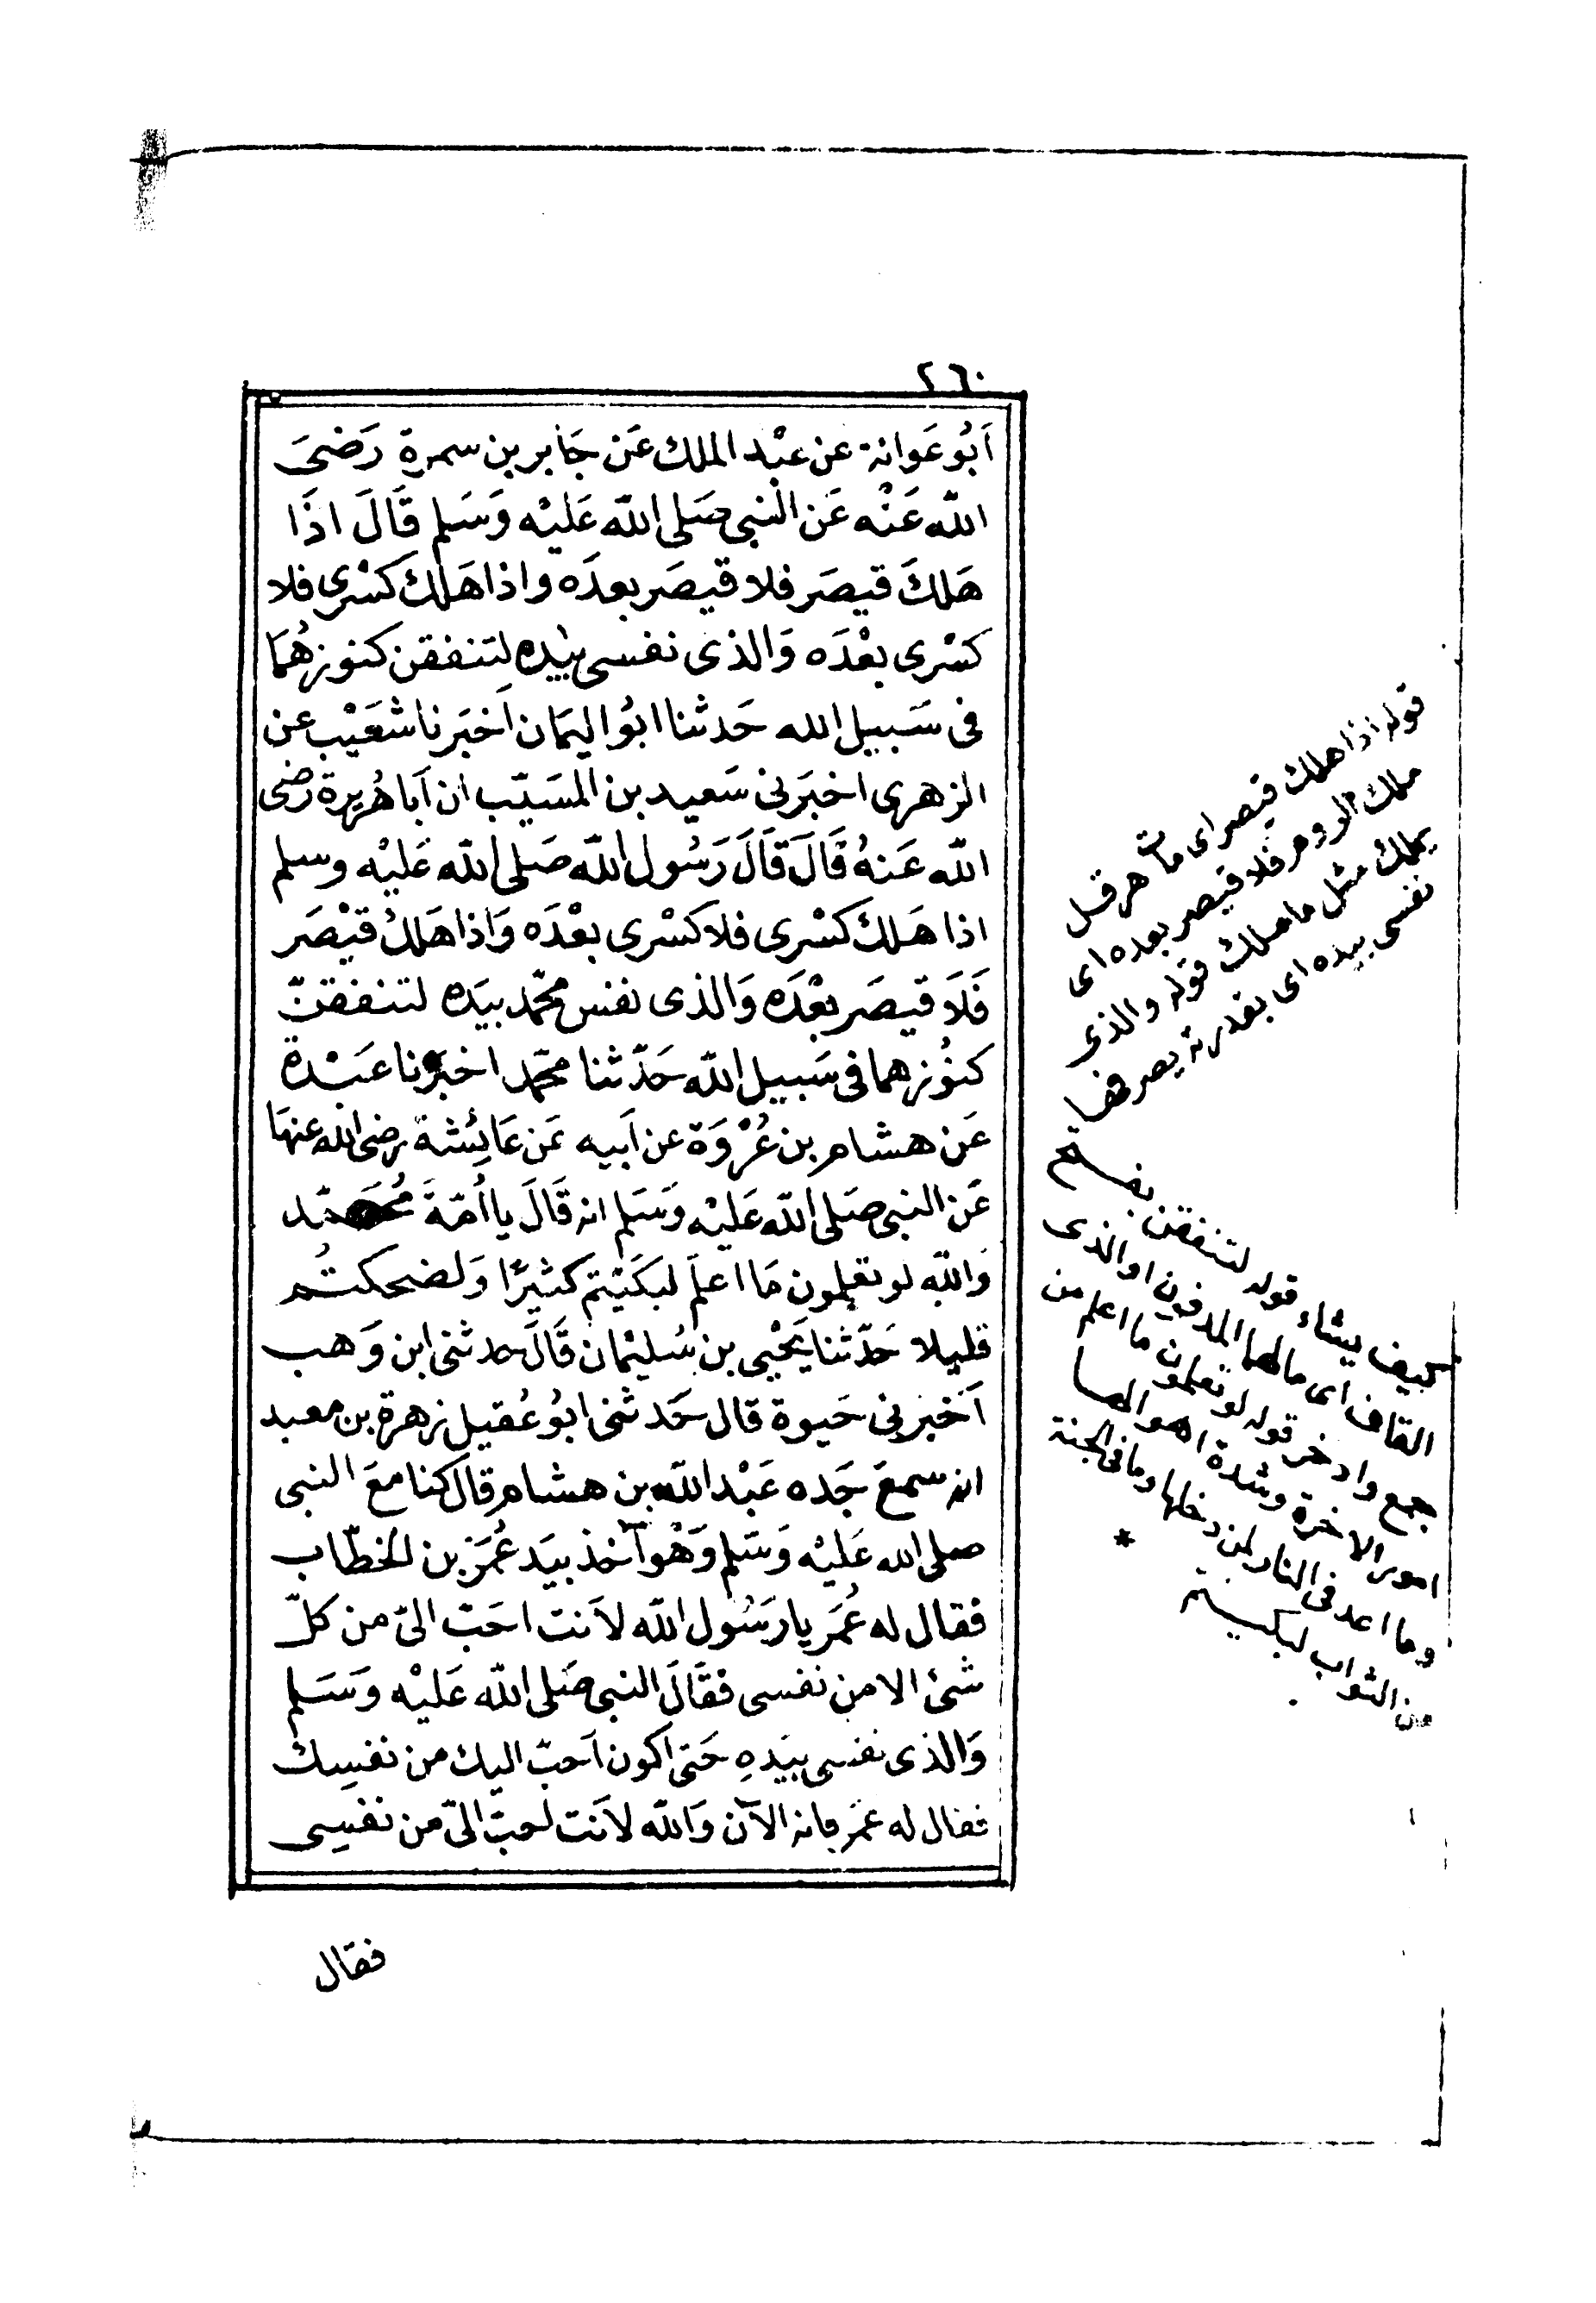 ٢٦٠
اَبُو عَوانة عن عبْد الملك عَن جَابر بن سمرة رَضىَ
اللّه عَنْه عَن النبى صَلى اللّه عَليْه وَسَلم قَالَ اذَا
هَلكَ قيصَر فلا قيصَر بعدَه واذا هَلك كسْرى فلا
كسْرى بعْدَه وَالذى نفسى بيَده لِتنفقن كنوزهُمَا
فى سَبيل الله حَدثنا ابوُ اليَمان اَخبَرنا شعَيْب عن
الزهرى اخبَرنى سَعيد بن المسَيّب ان اَبا هُريرة رضى
اللّه عَنهُ قَالَ قَالَ رَسُول اللّه صَلى اللّه عَليْه وسلم
اذا هَلك كسْرى فلا كسْرى بعْدَه وَاذا هَلكُ قيْصَر
فَلَا قيصَر بعْدَه وَالذى نفس محمّد بيَده لتنفقنّ
كنوُزهما فى سَبيل اللّه حَدّثنا محمّد اخبَرنا عَبْدة
عَن هشام بن عُرْوَة عن اَبيه عَن عَائِشة رضى الله عنهَا
عَن النبى صَلى اللّه عَليْه وَسَلم انه قَالَ يا اُمّةَ مُحَمّد
وَاللّه لو تعلمون مَا اعلَم لبَكَيْتم كثيرًا وَلضحكتُم
قليلا حَدّثنا يَحْيى بن سُليْمان قَالَ حدثنى ابن وَهب
اَخبرنى حَيوة قال حَدثنى ابوُ عُقيل زهرة بن معبد
انه سمعَ جَده عَبْد اللّه بن هشام قال كنا معَ النبى
صلى الله عَليْه وَسَلم وَهْو آخذ بيَد عُمَر بن الخطّاب
فقال له عُمَر يا رَسُول اللّه لاَنت احَبّ الىّ من كلّ
شىْ الا من نفسى فقَالَ النبى صَلى اللّه عَليْه وَسَلم
وَالذى نفسى بيَدهِ حَتى اكون اَحبّ اليك من نفسِك
فقال له عمَر فانه الآن وَاللّه لاَنت احبّ الىّ من نفسِى
فقال
قوله اذا هلك قيصر اى مات هرقل
ملك الروم فلا قيصر بعده اى
يملك مثل ما ملك قوله والذى
نفسى بيده اى بقدرته يصرفها
كيف يشاء قوله لتنفقن بفتح
القاف اى مالهما المدفون او الذى
جمع وادخر قوله لو تعلمون ما اعلم من
امور الاخرة وشدة اهوالها
وما اعد فى النار لمن دخلها وما فى الجنة
من الثواب لبكيتم